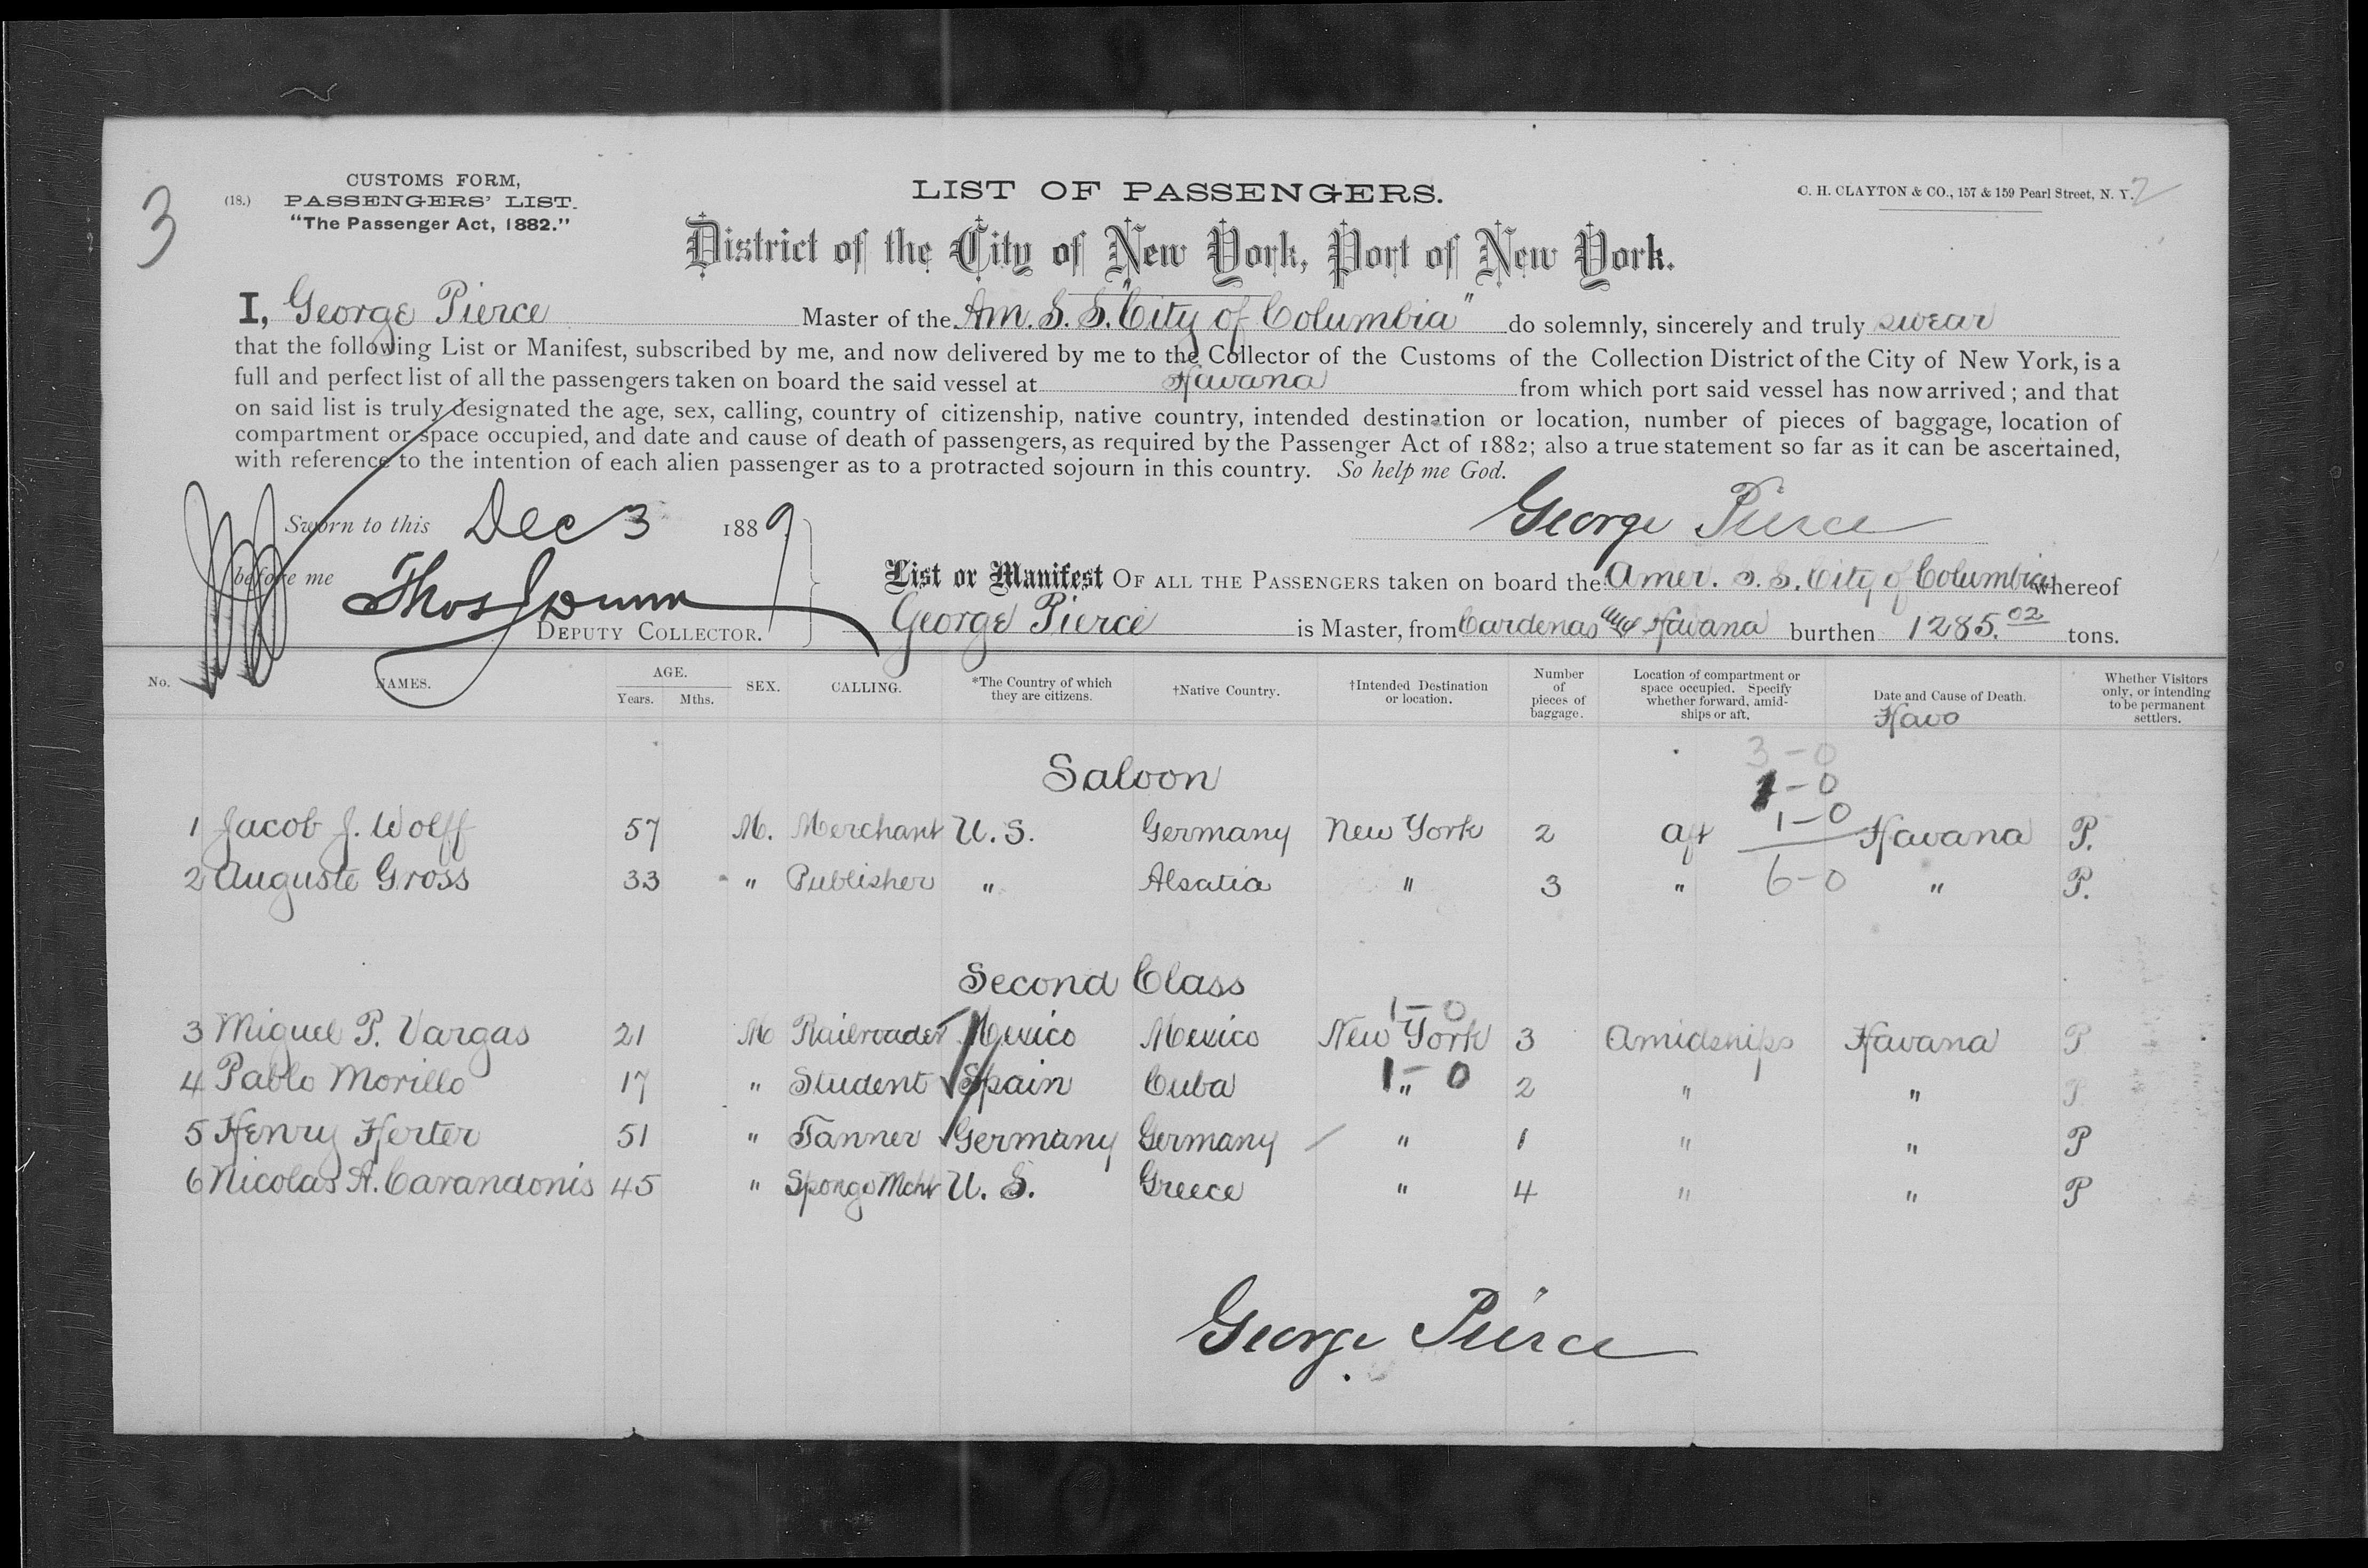 3
(18.)
CUSTOMS FORM,
PASSENGERS' LIST.
"The Passenger Act, 1882."
LIST OF PASSENGERS.
C. H. CLAYTON & CO., 157 & 159 Pearl Street, N. Y. 2
District of the City of New York, Port of New York.
I, George Pierce Master of the Am. S. S. "City of Columbia" do solemnly, sincerely and truly swear
that the following List or Manifest, subscribed by me, and now delivered by me to the Collector of the Customs of the Collection District of the City of New York, is a
full and perfect list of all the passengers taken on board the said vessel at Havana from which port said vessel has now arrived; and that
on said list is truly designated the age, sex, calling, country of citizenship, native country, intended destination or location, number of pieces of baggage, location of
compartment or space occupied, and date and cause of death of passengers, as required by the Passenger Act of 1882; also a true statement so far as it can be ascertained,
with reference to the intention of each alien passenger as to a protracted sojourn in this country. So help me God.
George Pierce
Sworn to this Dec 3 1889
before me Thos J Dunn
DEPUTY COLLECTOR.
List or Manifest OF ALL THE PASSENGERS taken on board the Amer. S. S. City of Columbia whereof
George Pierce is Master, from Cardenas and Havana burthen 1285.02 tons.
No. NAMES. AGE. Years. Mths. SEX. CALLING. *The Country of which they are citizens. †Native Country. †Intended Destination or location. Number of pieces of baggage. Location of compartment or space occupied. Specify whether forward, amidships or aft. Date and Cause of Death. Whether Visitors only, or intending to be permanent settlers.
Havo
3-0
Saloon
1-0
1-0
1 Jacob J. Wolff 57 M. Merchant U. S. Germany New York 2 aft Havana P.
2 Auguste Gross 33 " Publisher " Alsatia " 3 " 6-0 " P.
Second Class
1-0
3 Miguel P. Vargas 21 M Railroader Mexico Mexico New York 3 Amidships Havana P
4 Pablo Morillo 17 " Student Spain Cuba " 1-0 2 " " P
5 Henry Herter 51 " Tanner Germany Germany " 1 " " P
6 Nicolas A. Carandonis 45 " Sponge Mcht U. S. Greece " 4 " " P
George Pierce